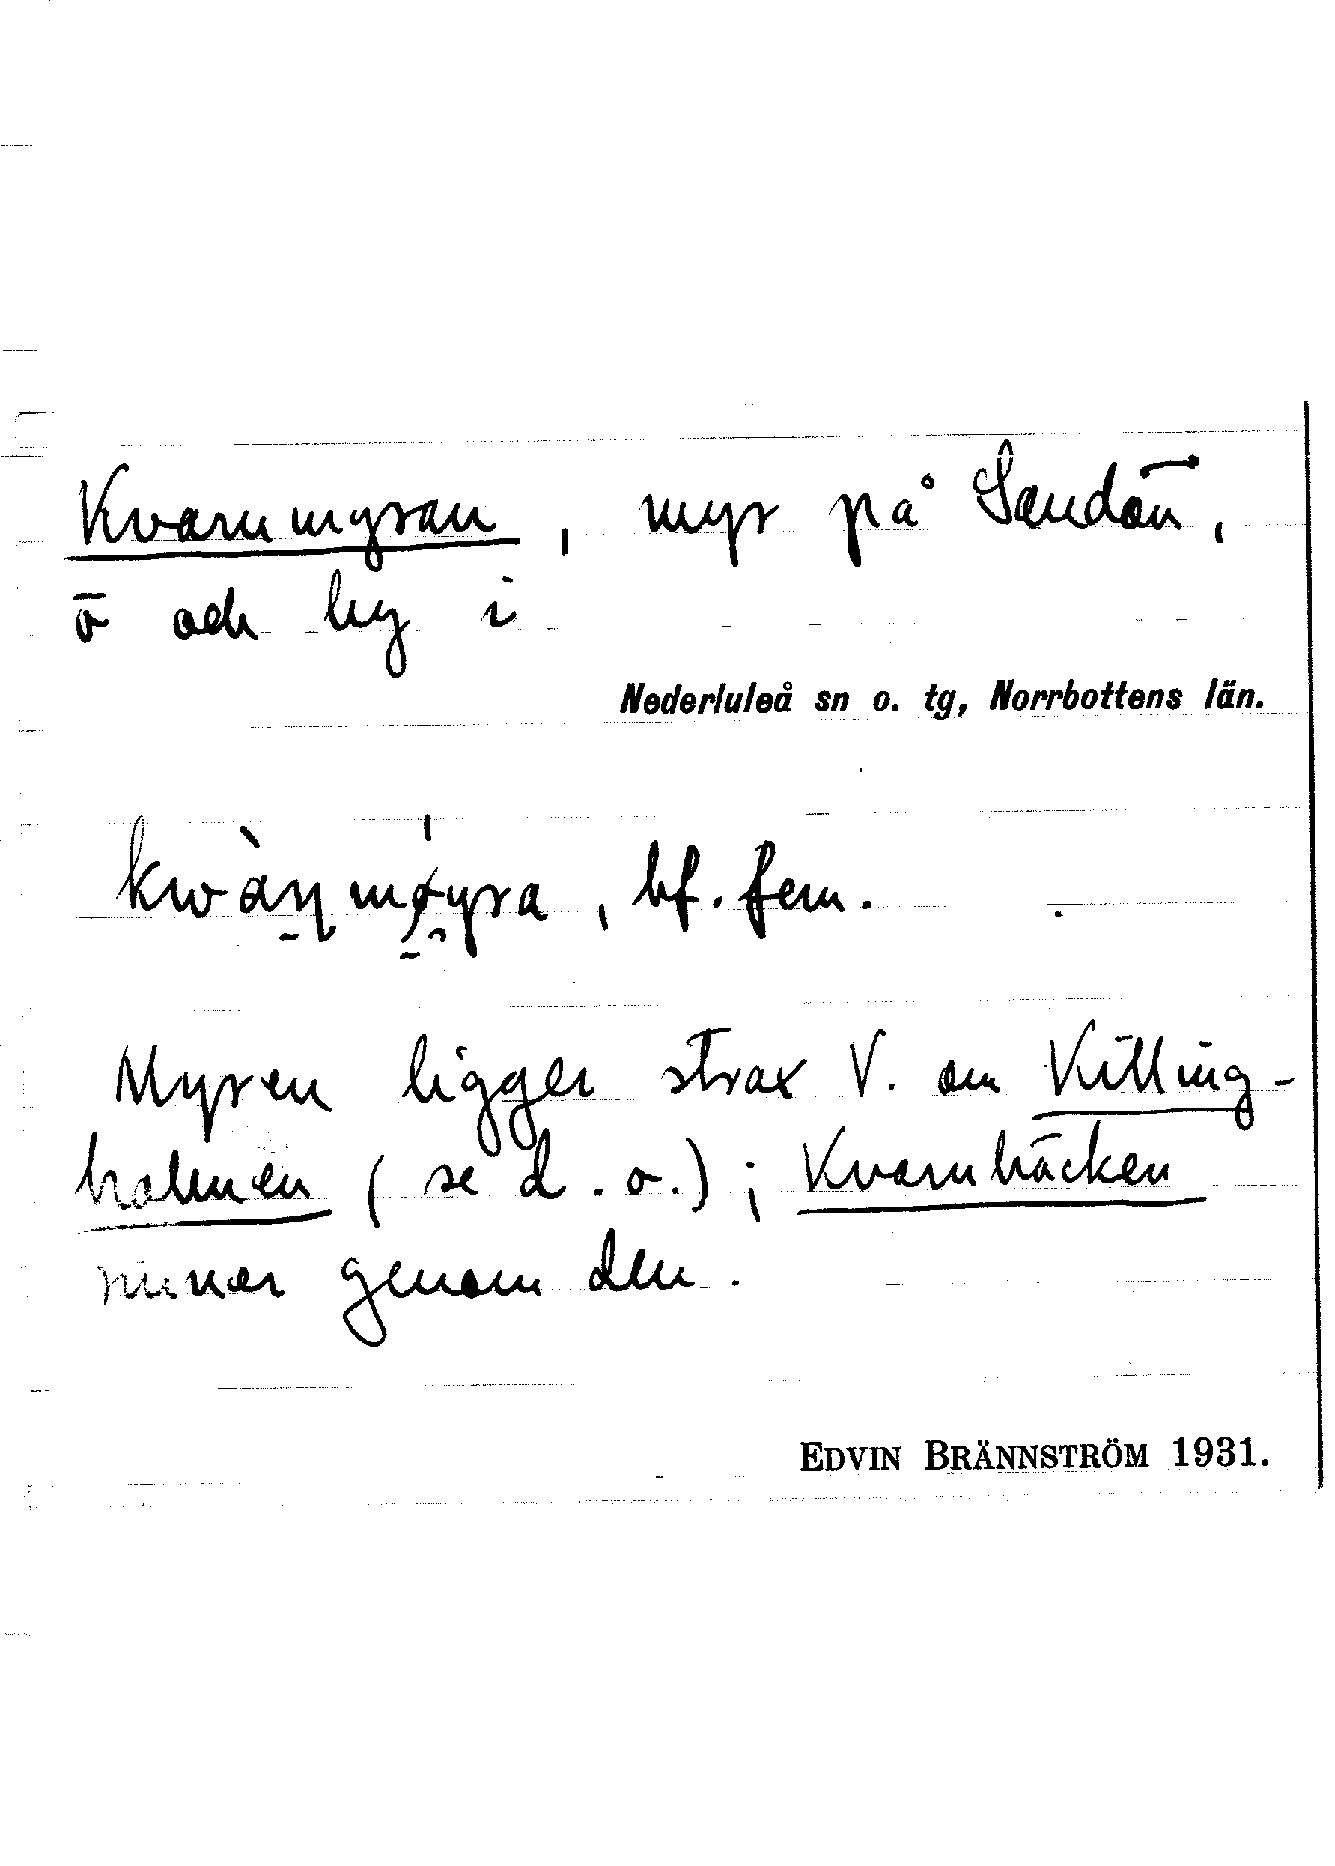 Kvarnmyran, myr på Sandön,
ö och by i
Nederluleå sn o. tg, Norrbottens län.
kwàɳmø̀yra, bf. fem.
Myren ligger strax V. om Killing-
holmen (se d. o.); Kvarnbäcken
rinner genom den.
EDVIN BRÄNNSTRÖM 1931.